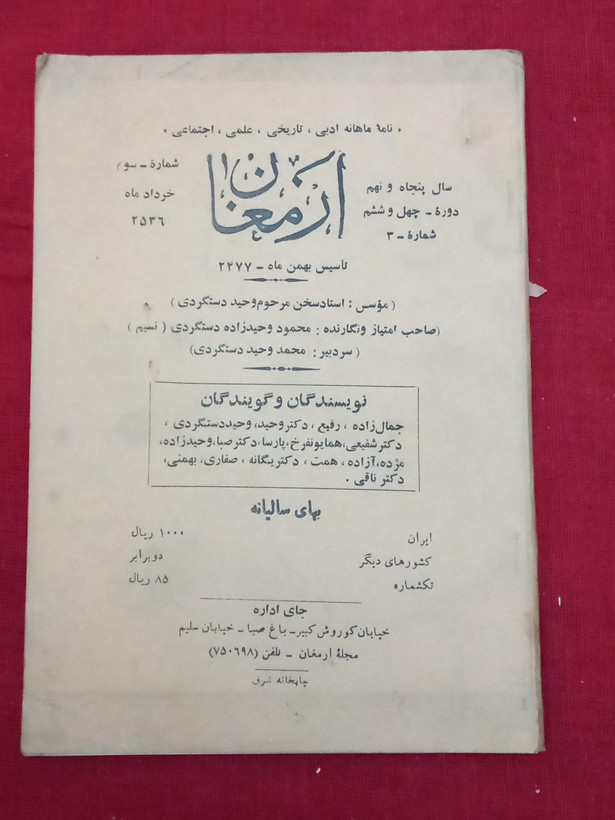 « نامهٔ ماهانه ادبی ، تاریخی ، علمی ، اجتماعی »
شمارهٔ - سوم
خرداد ماه
۲۵۳۶
ارمغان
سال پنجاه و نهم
دورهٔ - چهل و ششم
شمارهٔ - ۳
تاسیس بهمن ماه - ۲۴۷۷
( مؤسس : استاد سخن مرحوم وحید دستگردی )
(صاحب امتیاز و نگارنده : محمود وحیدزاده دستگردی ( نسیم )
( سردبیر : محمد وحید دستگردی)
نویسندگان و گویندگان
جمال‌زاده ، رفیع ، دکتر وحید، وحید دستگردی ،
دکتر شفیعی، همایونفرخ، پارسا، دکتر صبا، وحیدزاده،
مژده، آزاده ، همت ، دکتر یگانه ، صفاری، بهمنی،
دکتر ناقی .
بهای سالیانه
ایران ۱۰۰۰ ریال
کشورهای دیگر دوبرابر
تکشماره ۸۵ ریال
جای اداره
خیابان کوروش کبیر - باغ صبا - خیابان سلیم
مجلهٔ ارمغان - تلفن (۷۵۰۶۹۸)
چاپخانه شرق